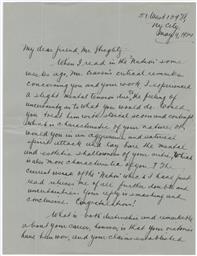 51 West 129 St
N.Y. City,
May 4, 1926
My dear friend, Mr.
When I read in the "Nation" some
weeks ago, Mr. critical remarks
concerning you and your work, I experienced
a slight mental tension due to the feeling of
uncertainty as to what you would do. Would
you treat him with stoical scorn and contempt
which is characteristic of your nature, or
would you in an aggressive and
spirited attack and lay bare the mental
and aesthetic shallowness of your critic, which
is also more characteristic of you? The
current issue of the "Nation" which I have just
read relieves me of all further doubts and
uncertainties. Your reply is smashing and
conclusive. Congratulations!
What is both distinctive and remarkable
about your career, however, is that your victories
have been won, and your claims established